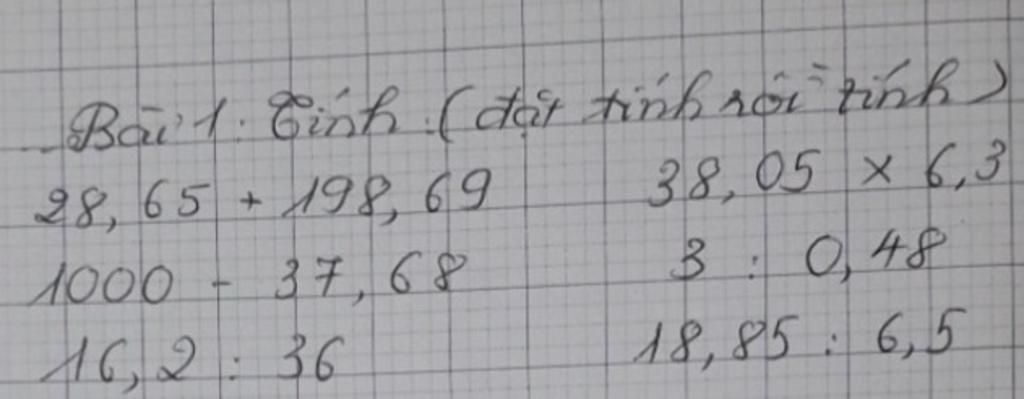 Bài 1: Tính (đặt tính rồi tính)
28,65 + 198,69 38,05 x 6,3
1000 - 37,68 3 : 0,48
16,2 : 36 18,85 : 6,5